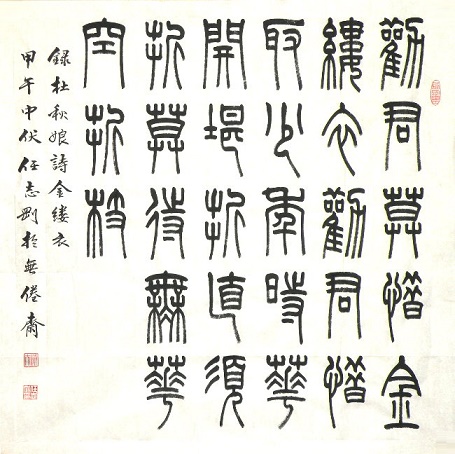 勸君莫惜金
縷衣勸君惜
取少年時華
開堪折直須
折莫待無華
空折枝
録杜秋娘詩金縷衣
甲午中伏任志剛於無倦齋